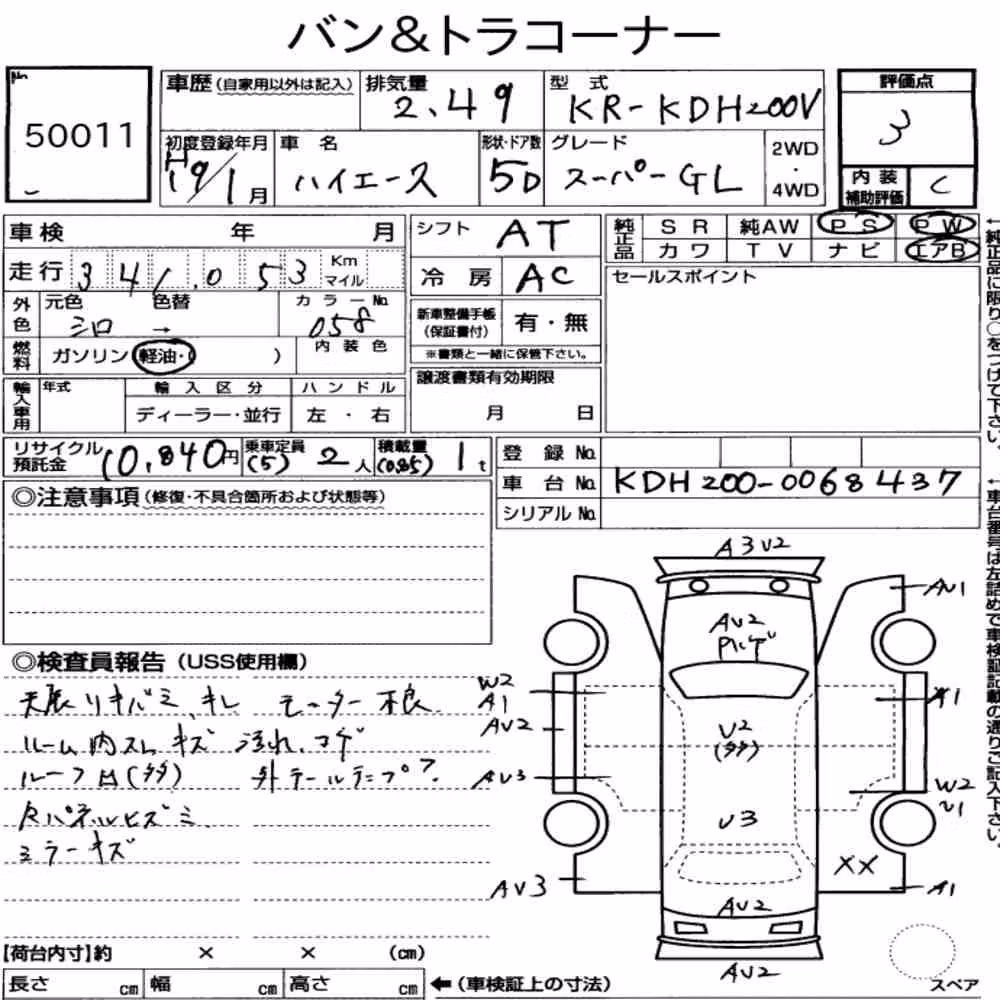 バン&トラコーナー
No. 50011
車歴(自家用以外は記入) 排気量 2.49 型式 KR-KDH200V
評価点 3
初度登録年月 H19/1月 車名 ハイエース 形状・ドア数 5D グレード スーパーGL 2WD・4WD
内装補助評価 C
車検 年 月
シフト AT
純正品 SR 純AW PS PW
カワ TV ナビ エアB
走行 341,053 Km マイル
冷房 AC
セールスポイント
外色 元色 シロ 色替 → カラーNo. 058
新車整備手帳(保証書付) 有・無
※書類と一緒に保管下さい。
燃料 ガソリン 軽油・( ) 内装色
譲渡書類有効期限
月 日
輸入車用 年式 輸入区分 ハンドル
ディーラー・並行 左・右
リサイクル預託金 10,840円 乗車定員 (5) 2人 積載量 (0.85) 1t
登録No.
車台No. KDH200-0068437
シリアルNo.
◎注意事項(修復・不具合箇所および状態等)
◎検査員報告(USS使用欄)
天張りキバミ、キレ モーター不良
ルーム内スレ キズ 汚れ、コゲ
ルーフ凹(多多) 外テールランプ?
Rパネルヒズミ、
ミラーキズ
A3 V2
AV1
AV2
W2
A1
A1
AV2
V2
(多多)
AV3
W2
V1
V3
XX
AV3
A1
AV2
AV2
スペア
【荷台内寸】約 × × (cm)
長さ cm 幅 cm 高さ cm ←(車検証上の寸法)
←純正品に限り○をつけて下さい。
←車台番号は左詰めで車検証記載の通りご記入下さい。